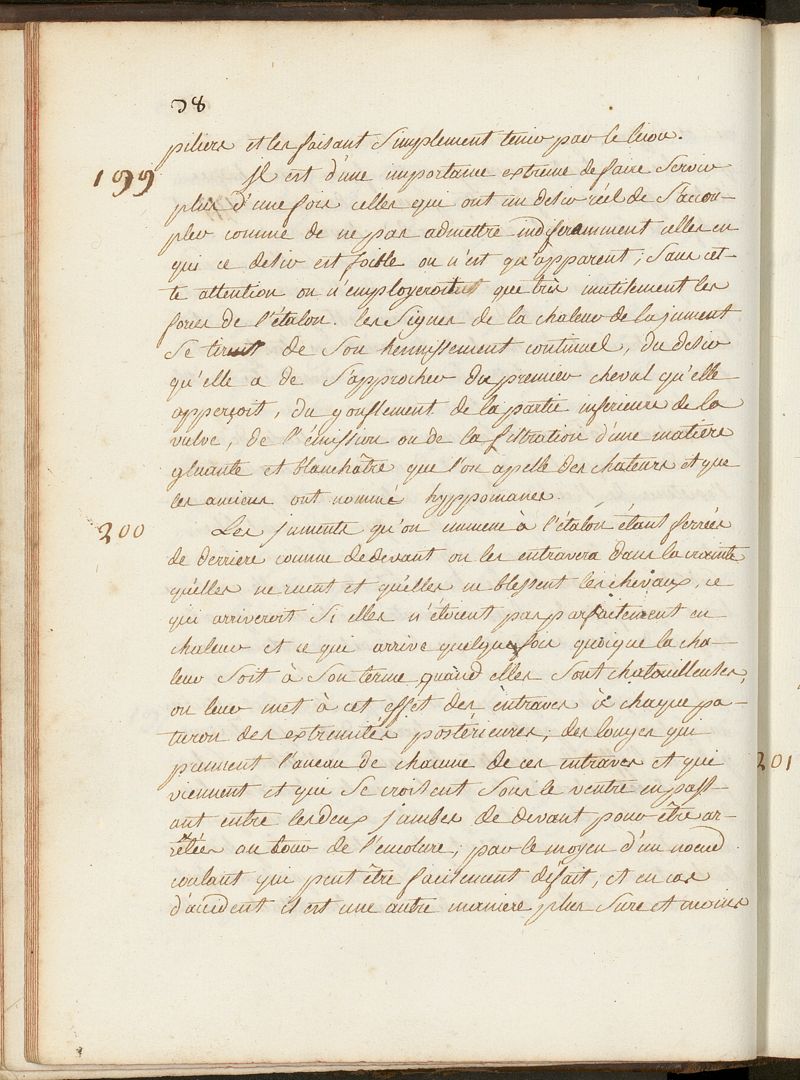 98
piliers et les faisant Simplement tenir par le licou.
199 Jl est d'une importance extreme de faire Servir
plus d'une fois celles qui ont un desir réel de S'accou-
pler comme de ne pas admettre indiferamment celles en
qui ce desir est foible ou n'est qu'apparent; Sans cet-
te attention on n'employeroit que très inutilement les
forces de l'étalon. les Signes de la chaleur de la jument
Se tirent de Son hennissement continuel, du desir
qu'elle a de S'approcher du premier cheval qu'elle
apperçoit, du gonflement de la partie inferieure de la
vulve, de l'émission ou de la filtration d'une matiere
gluante et blanchâtre que l'on apelle des chaleurs et que
les anciens ont nommé hyppomanes.
200 Les juments qu'on emmene à l'étalon étant ferrées
de derriere comme de devant on les entravera dans la crainte
qu'elles ne ruent et qu'elles ne blessent les chevaux, ce
qui arriveroit Si elles n'étoient pas parfaitement en
chaleur et ce qui arrive quelque fois quoique la cha-
leur Soit à Son terme quand elles Sont chatouilleuses,
on leur met à cet effet des entraves à chaque pa-
turon des extremités postérieures; des longes qui
prennent l'aneau de chacune de ces entraves et qui
viennent et qui Se croisent Sous le ventre en pass-
ant entre les deux jambes de devant pour être ar-
rêtées au tour de l'encolure, par le moyen d'un noeud
coulant qui peut être facilement défait, et en cas
d'accident il est une autre maniere plus Sure et moins
201